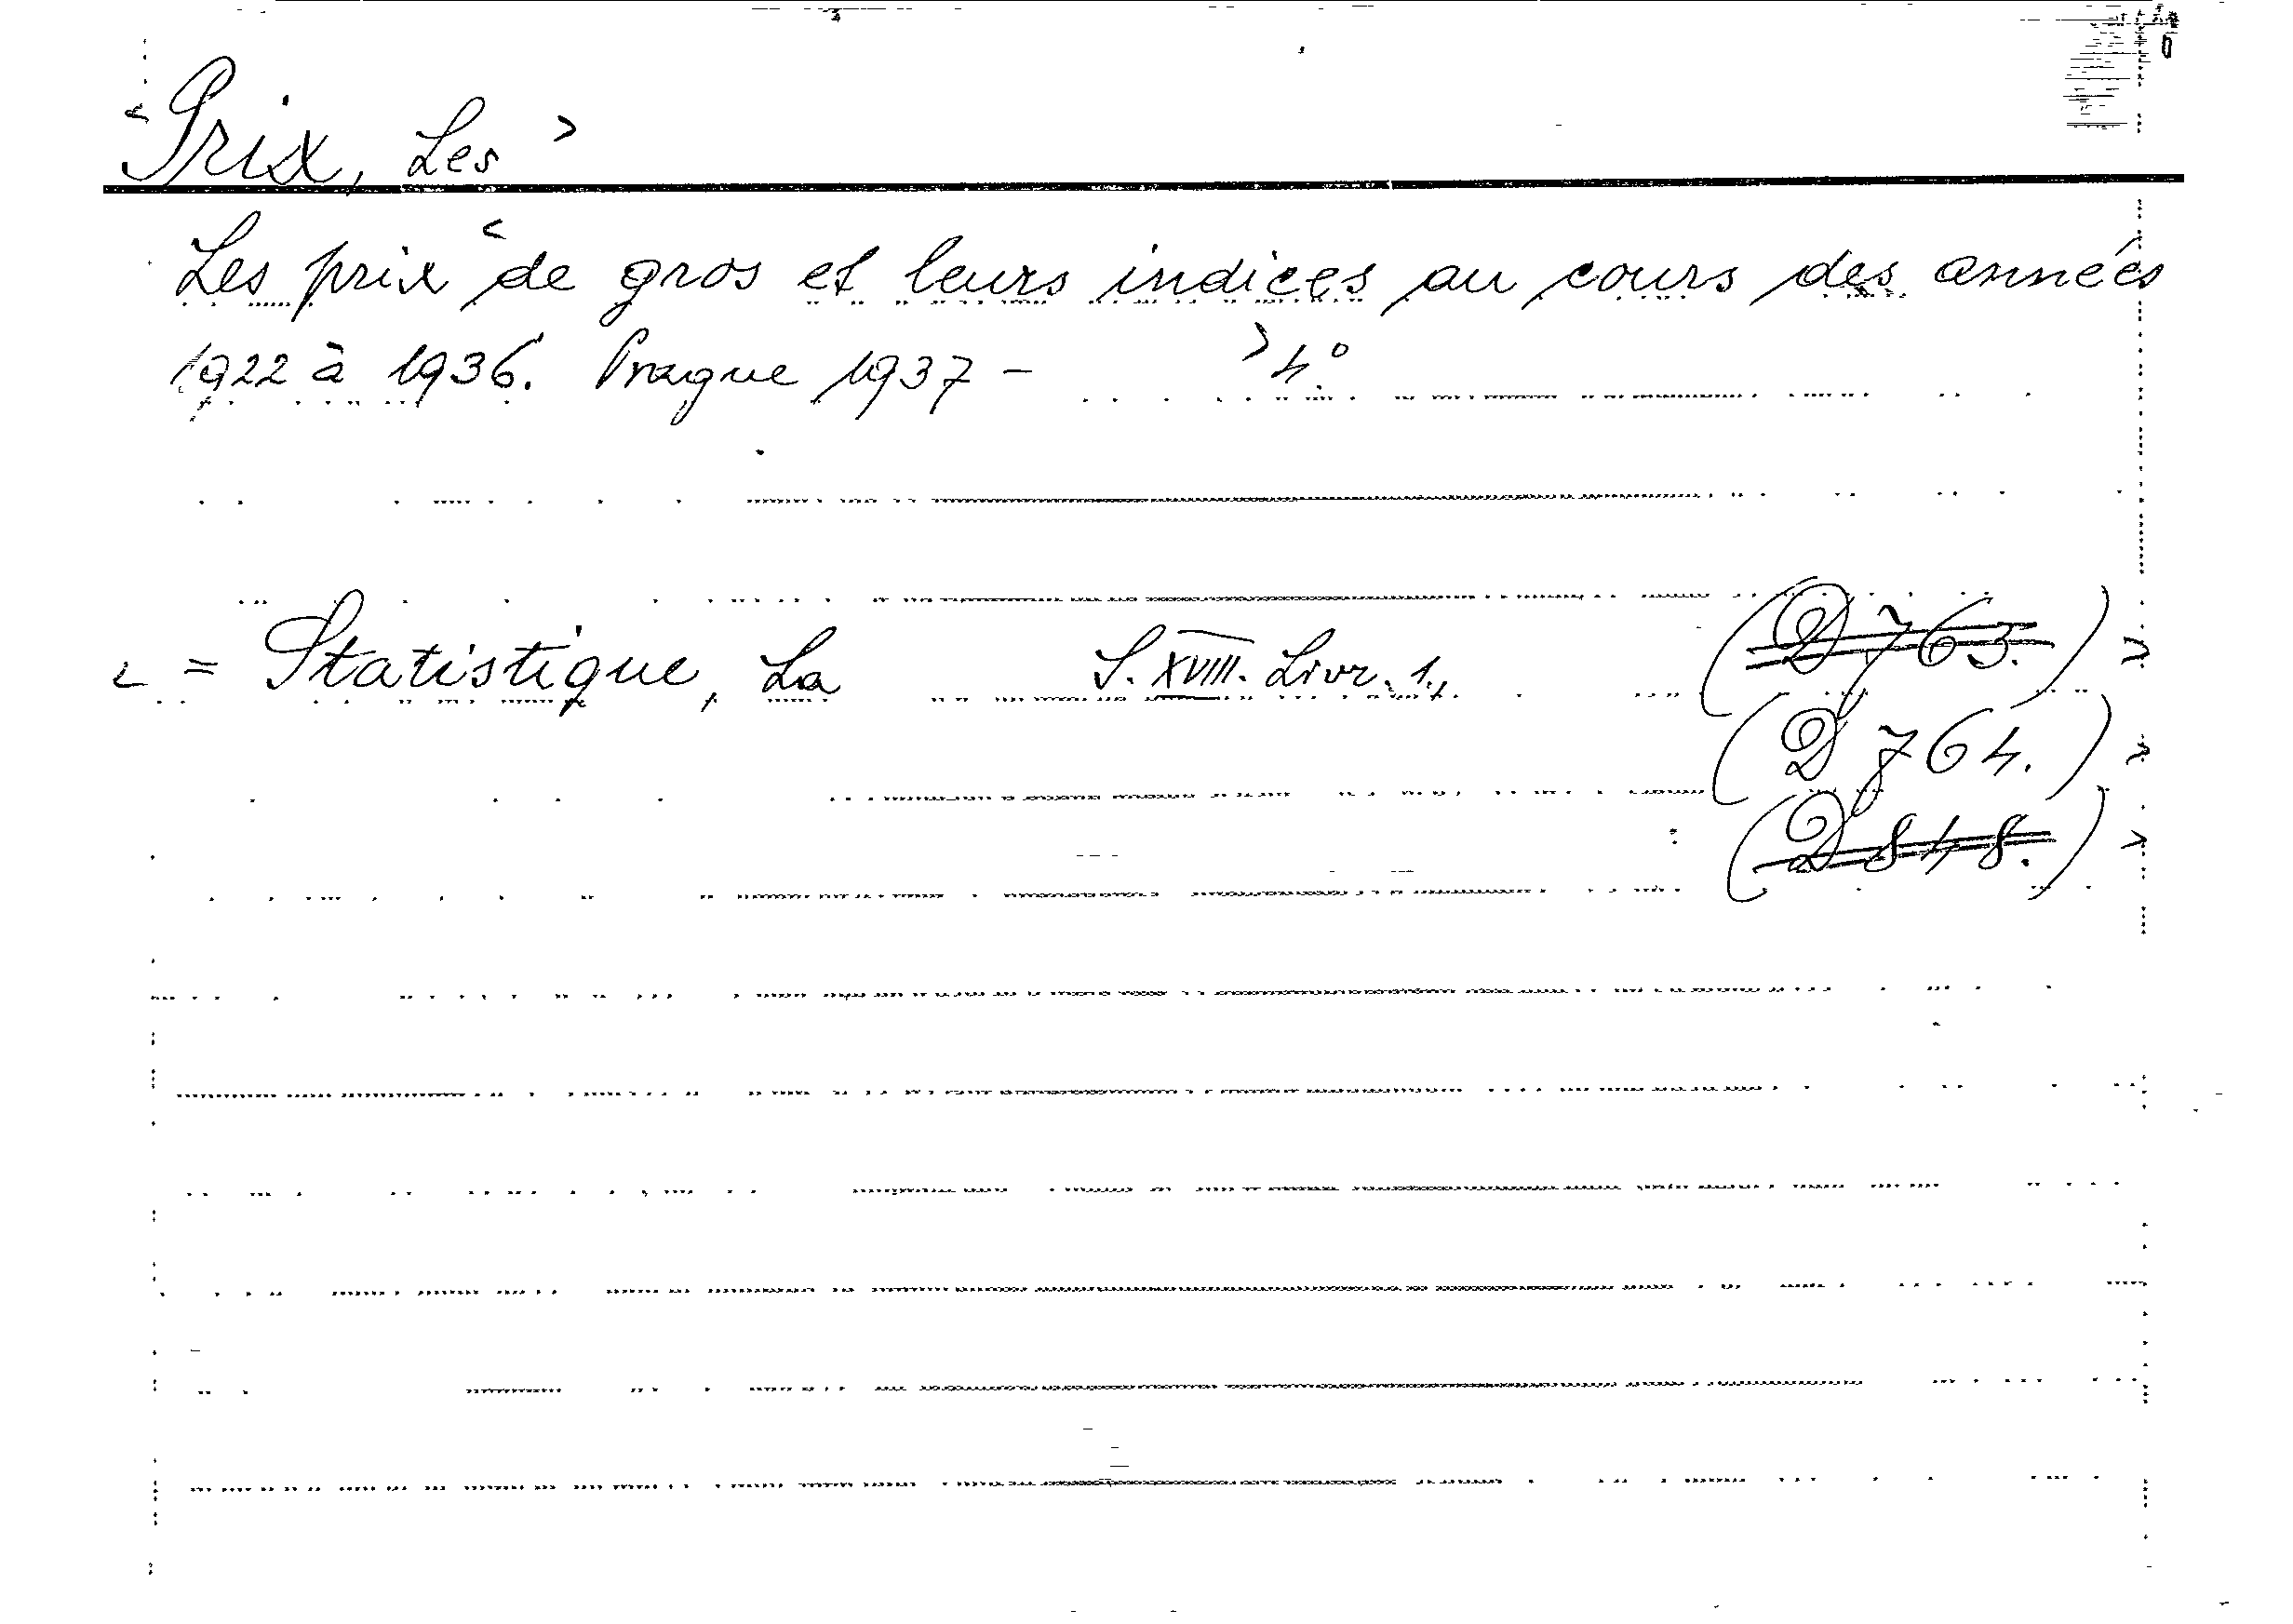 <Prix, Les>
Les prix <de gros et leurs indices au cours des années
1922 à 1936. Prague 1937 - >4°
< = Statistique, La S. XVIII. Livr. 1., (D 763.) >
(D 764.) >
(D 848.) >